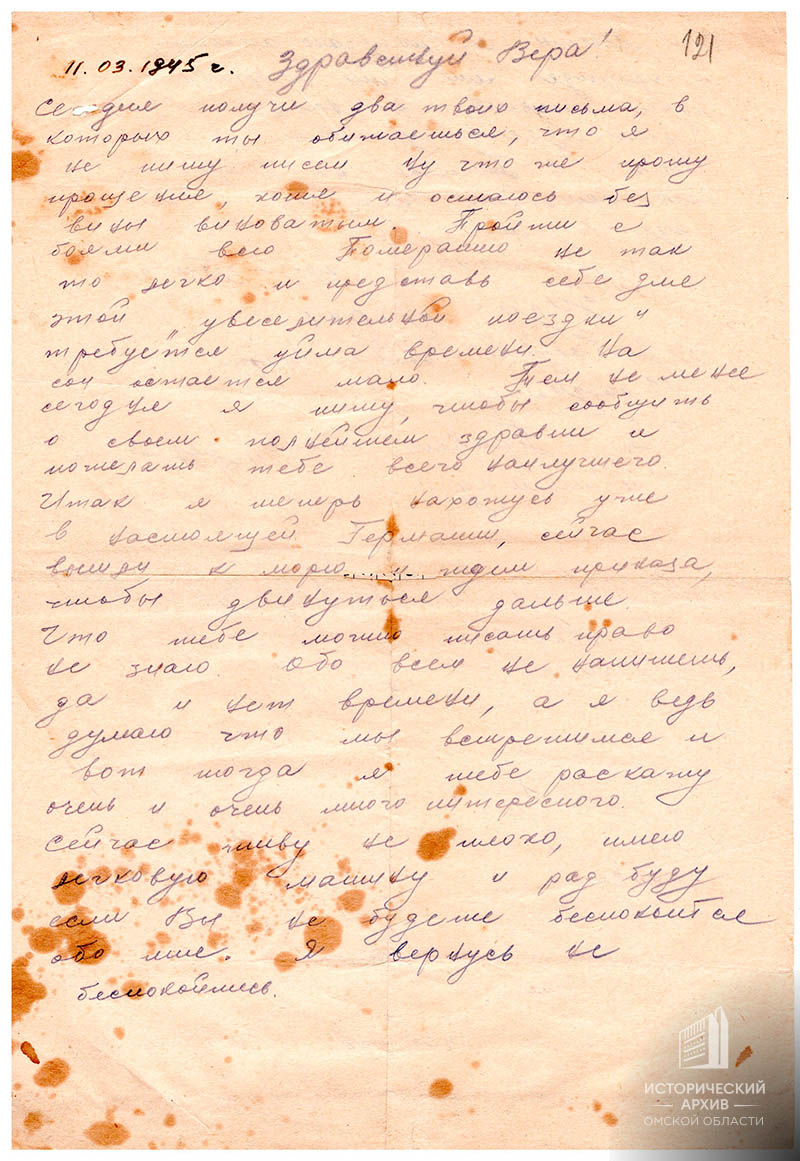 121
11.03.1945 г. Здравствуй Вера!
Сегодня получи два твоих письма, в
которых ты обижаешься, что я
не пишу писем ну что же прошу
прощения, хотя и остаюсь без
вины виноватым. Пройти с
боями всю Померанию не так
то легко и представь себе для
этой „увеселительной поездки"
требуется уйма времени. На
сон остается мало. Тем не менее
сегодня я пишу, чтобы сообщить
о своем полнейшем здравии и
пожелать тебе всего наилучшего.
Итак я теперь нахожусь уже
в настоящей Германии, сейчас
вышли к морю и ждем приказа,
чтобы двинуться дальше.
Что тебе можно писать право
не знаю. Обо всем не напишешь,
да и нет времени, а я ведь
думаю что мы встретимся и
вот тогда я тебе раскажу
очень и очень много интересного.
Сейчас живу не плохо, имею
легковую машину и рад буду
если Вы не будете беспокоится
обо мне. Я вернусь не
беспокойтесь.
ИСТОРИЧЕСКИЙ
АРХИВ
ОМСКОЙ ОБЛАСТИ